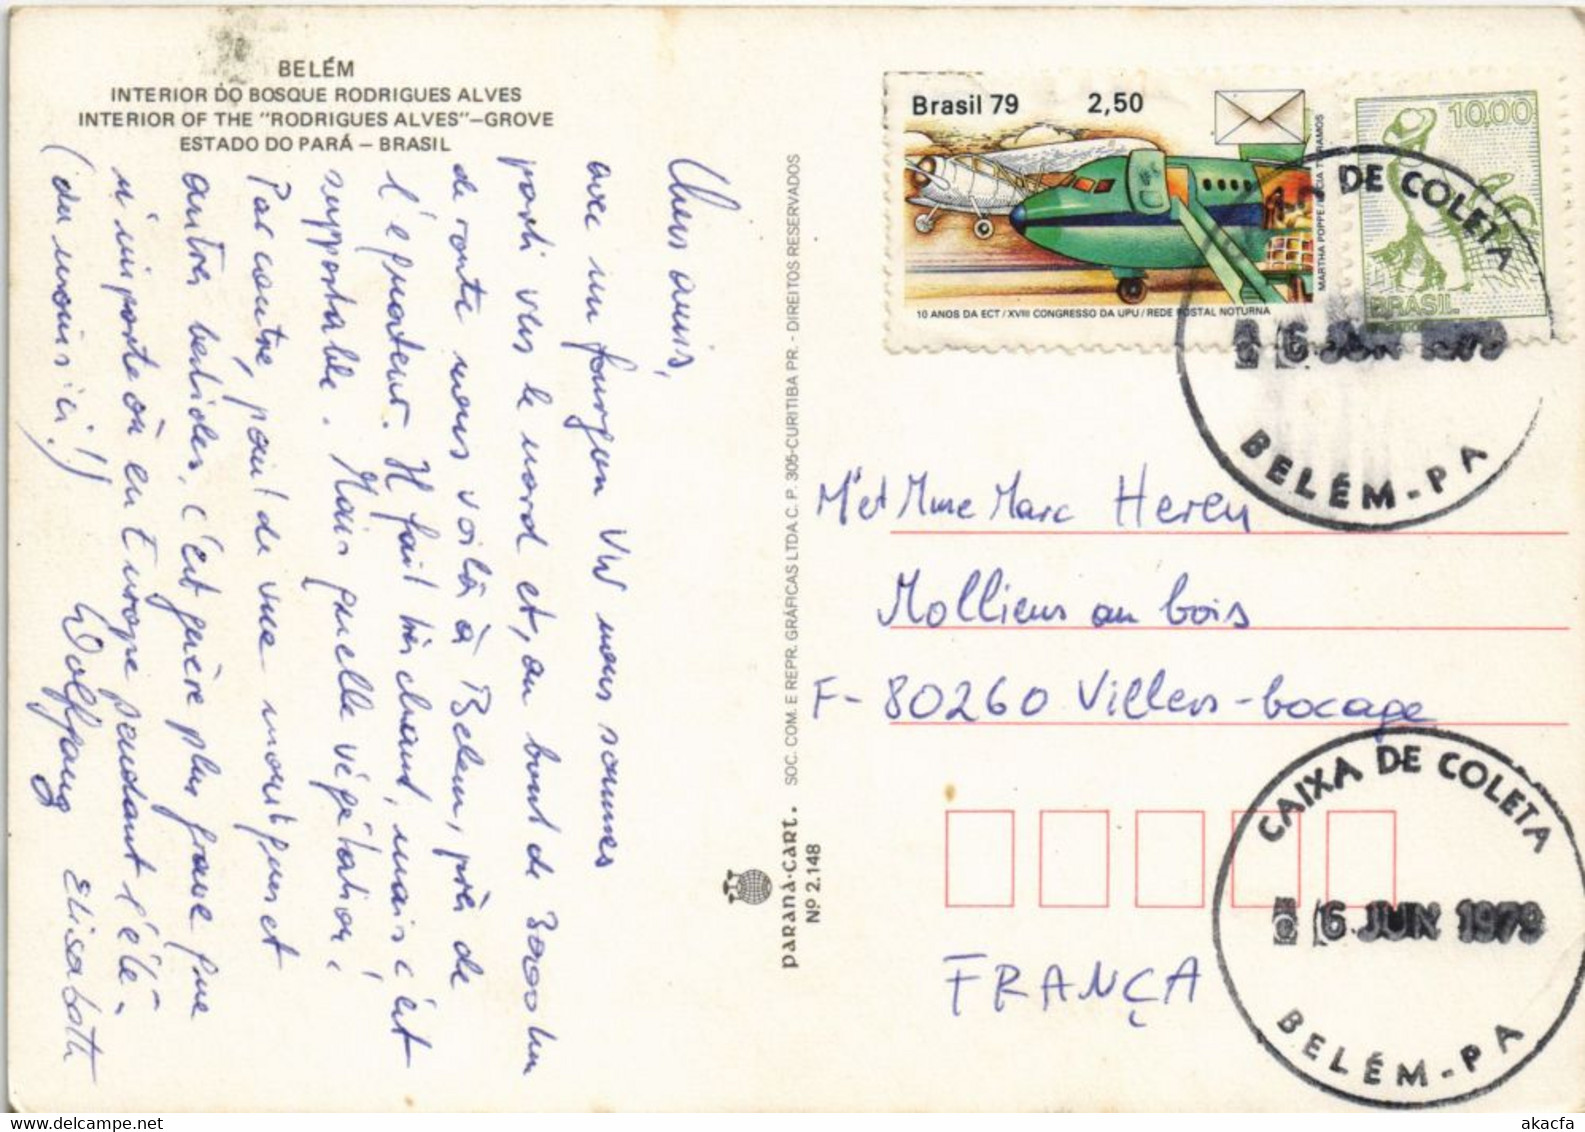 BELÉM
INTERIOR DO BOSQUE RODRIGUES ALVES
INTERIOR OF THE "RODRIGUES ALVES"—GROVE
ESTADO DO PARÁ — BRASIL
Chers amis,
avec un fourgon VW nous sommes
parti vers le nord et, au bout de 3000 km
de route nous voilà à Belem, près de
l'équateur. Il fait très chaud, mais c'est
supportable. Mais quelle végétation!
Par contre, point de vue moustiques et
autres bestioles, c'est guère plus grave que
n'importe où en Europe pendant l'été.
(du moins ici!)
Wolfgang Elisabeth
SOC. COM. E REPR. GRÁFICAS LTDA C. P. 305-CURITIBA PR. - DIREITOS RESERVADOS
PARANÁ-CART.
Nº 2.148
Brasil 79 2,50
MARTHA POPPE /
10 ANOS DA ECT / XVIII CONGRESSO DA UPU / REDE POSTAL NOTURNA
10,00
BRASIL
DE COLETA
6 JUN 1979
BELÉM-PA
Mr et Mme Marc Heren
Molliens au bois
F-80260 Villers-bocage
FRANÇA
CAIXA DE COLETA
6 JUN 1979
BELÉM-PA
akacfa